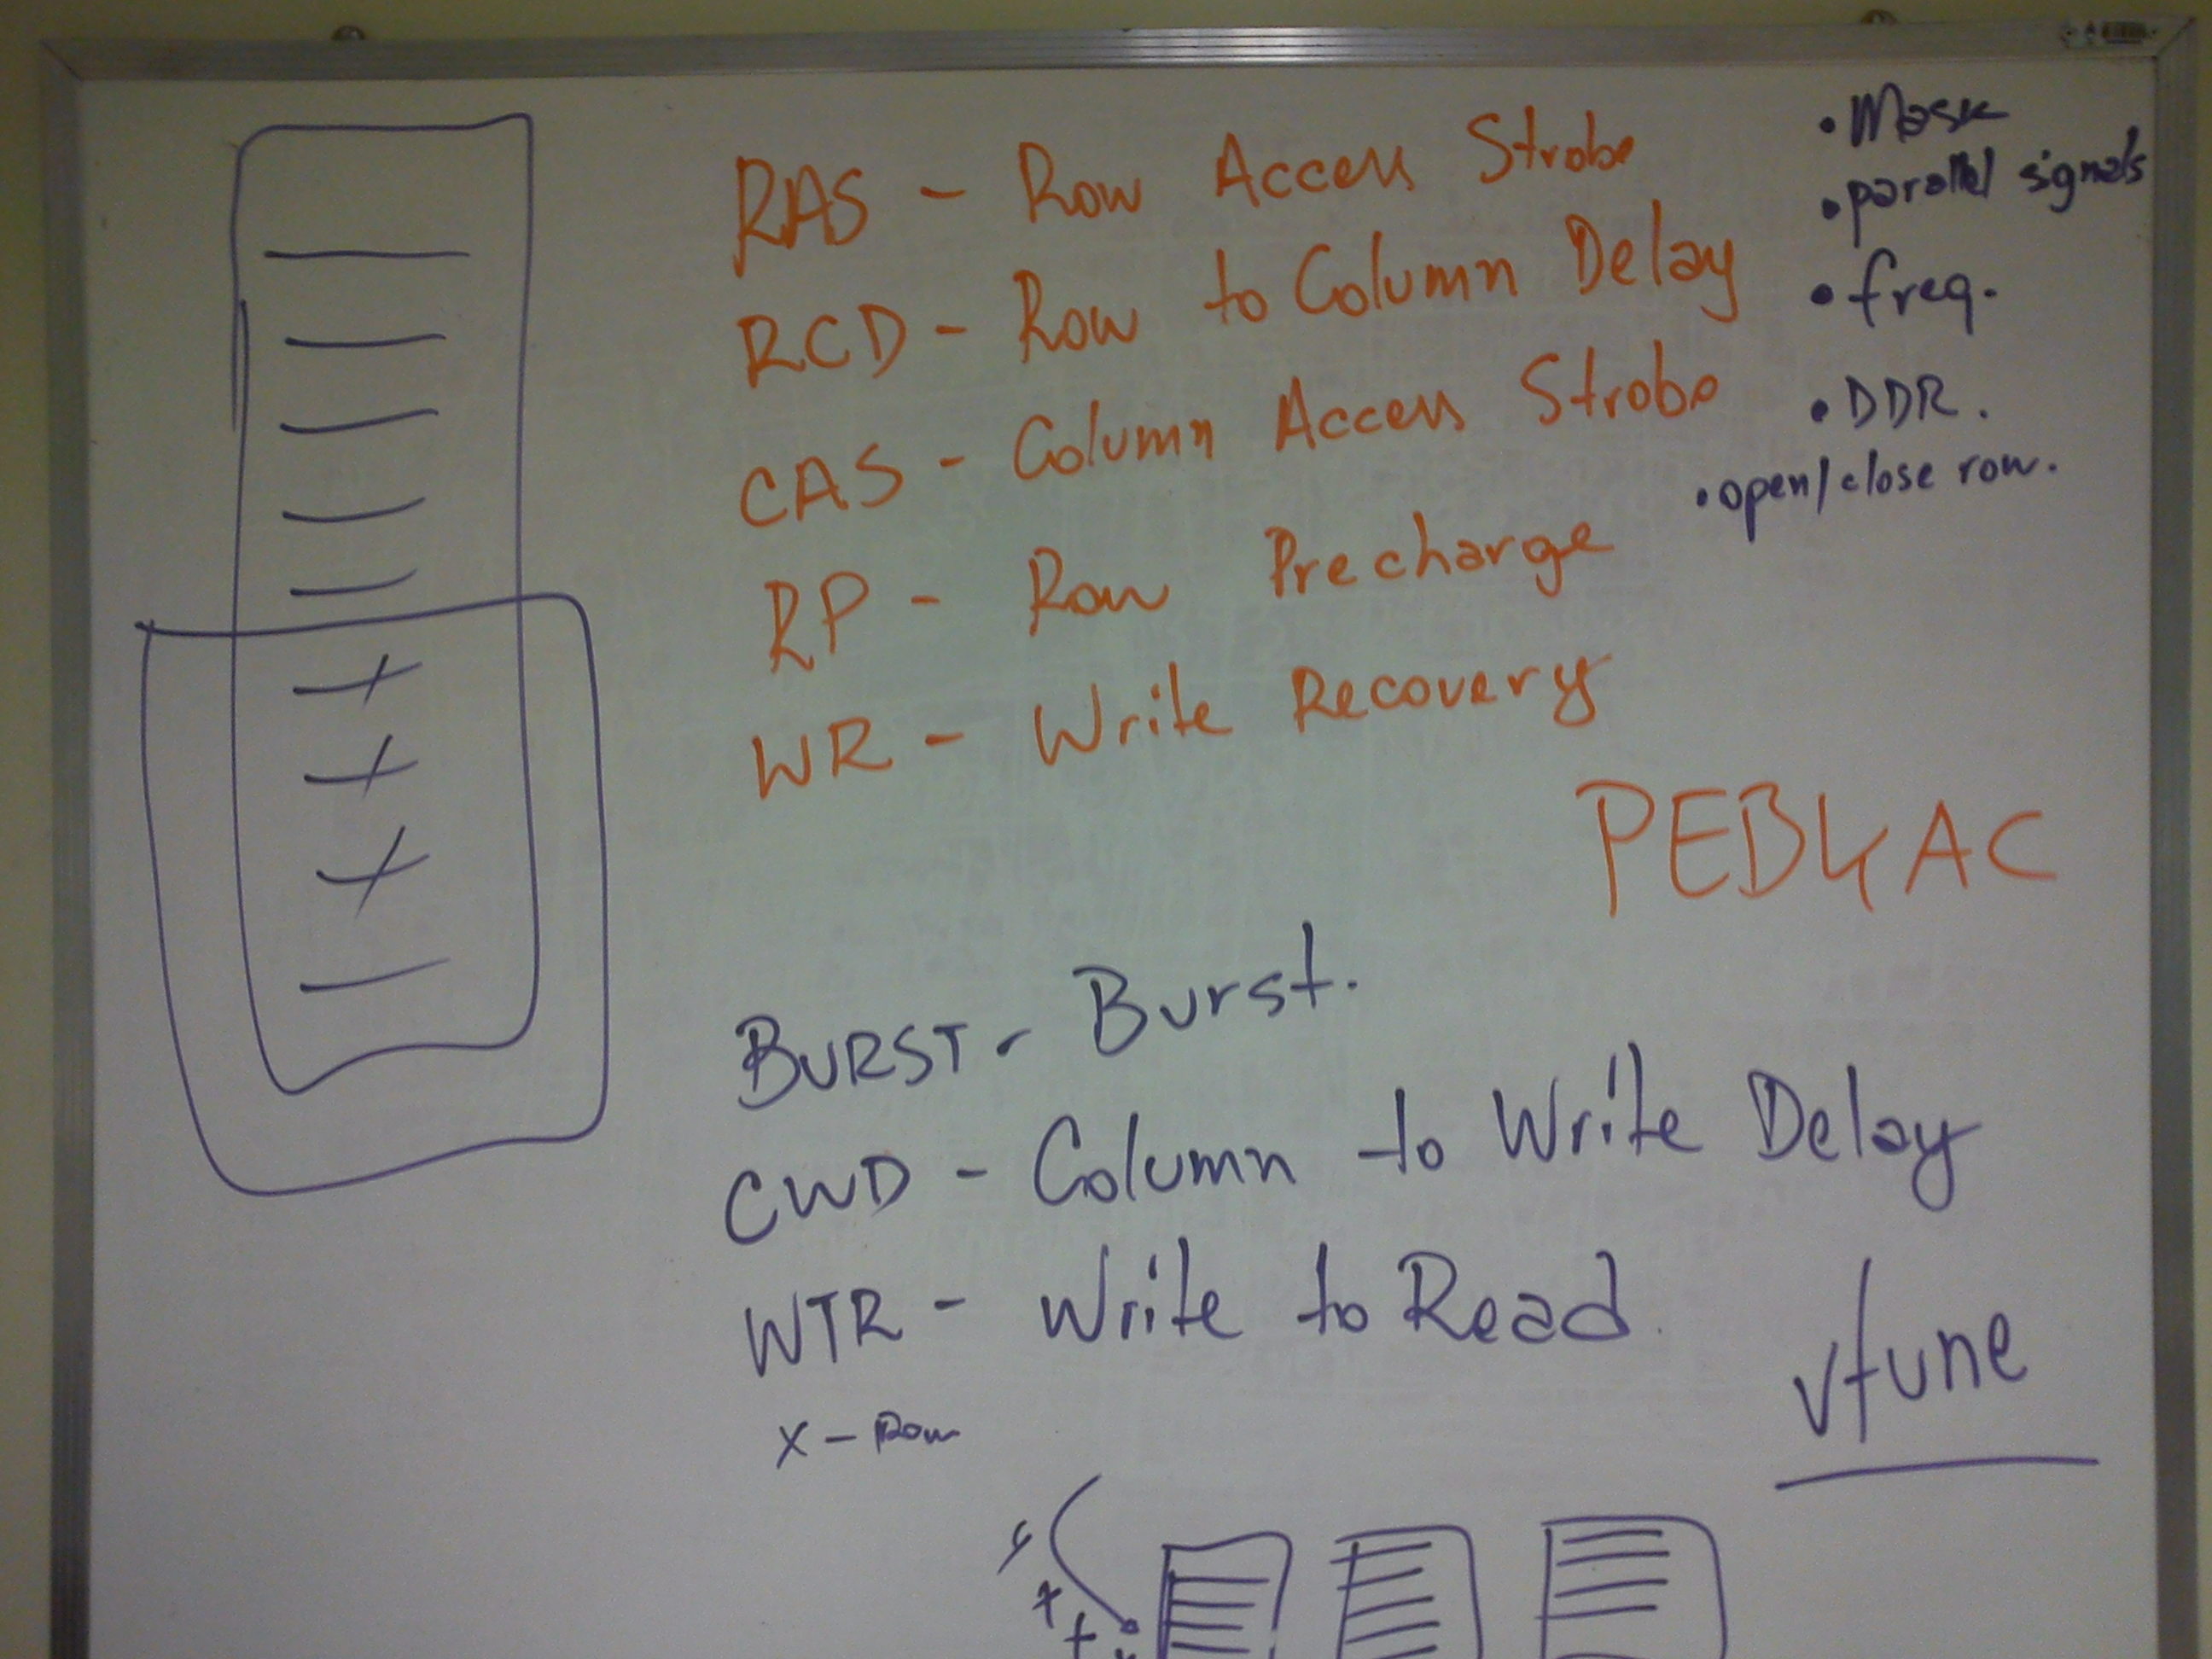 RAS - Row Access Strobe
RCD - Row to Column Delay
CAS - Column Access Strobe
RP - Row Precharge
WR - Write Recovery
• Mask
• parallel signals
• freq.
• DDR.
• open/close row.
PEBKAC
BURST - Burst.
CWD - Column to Write Delay
WTR - Write to Read
X - Row
vtune